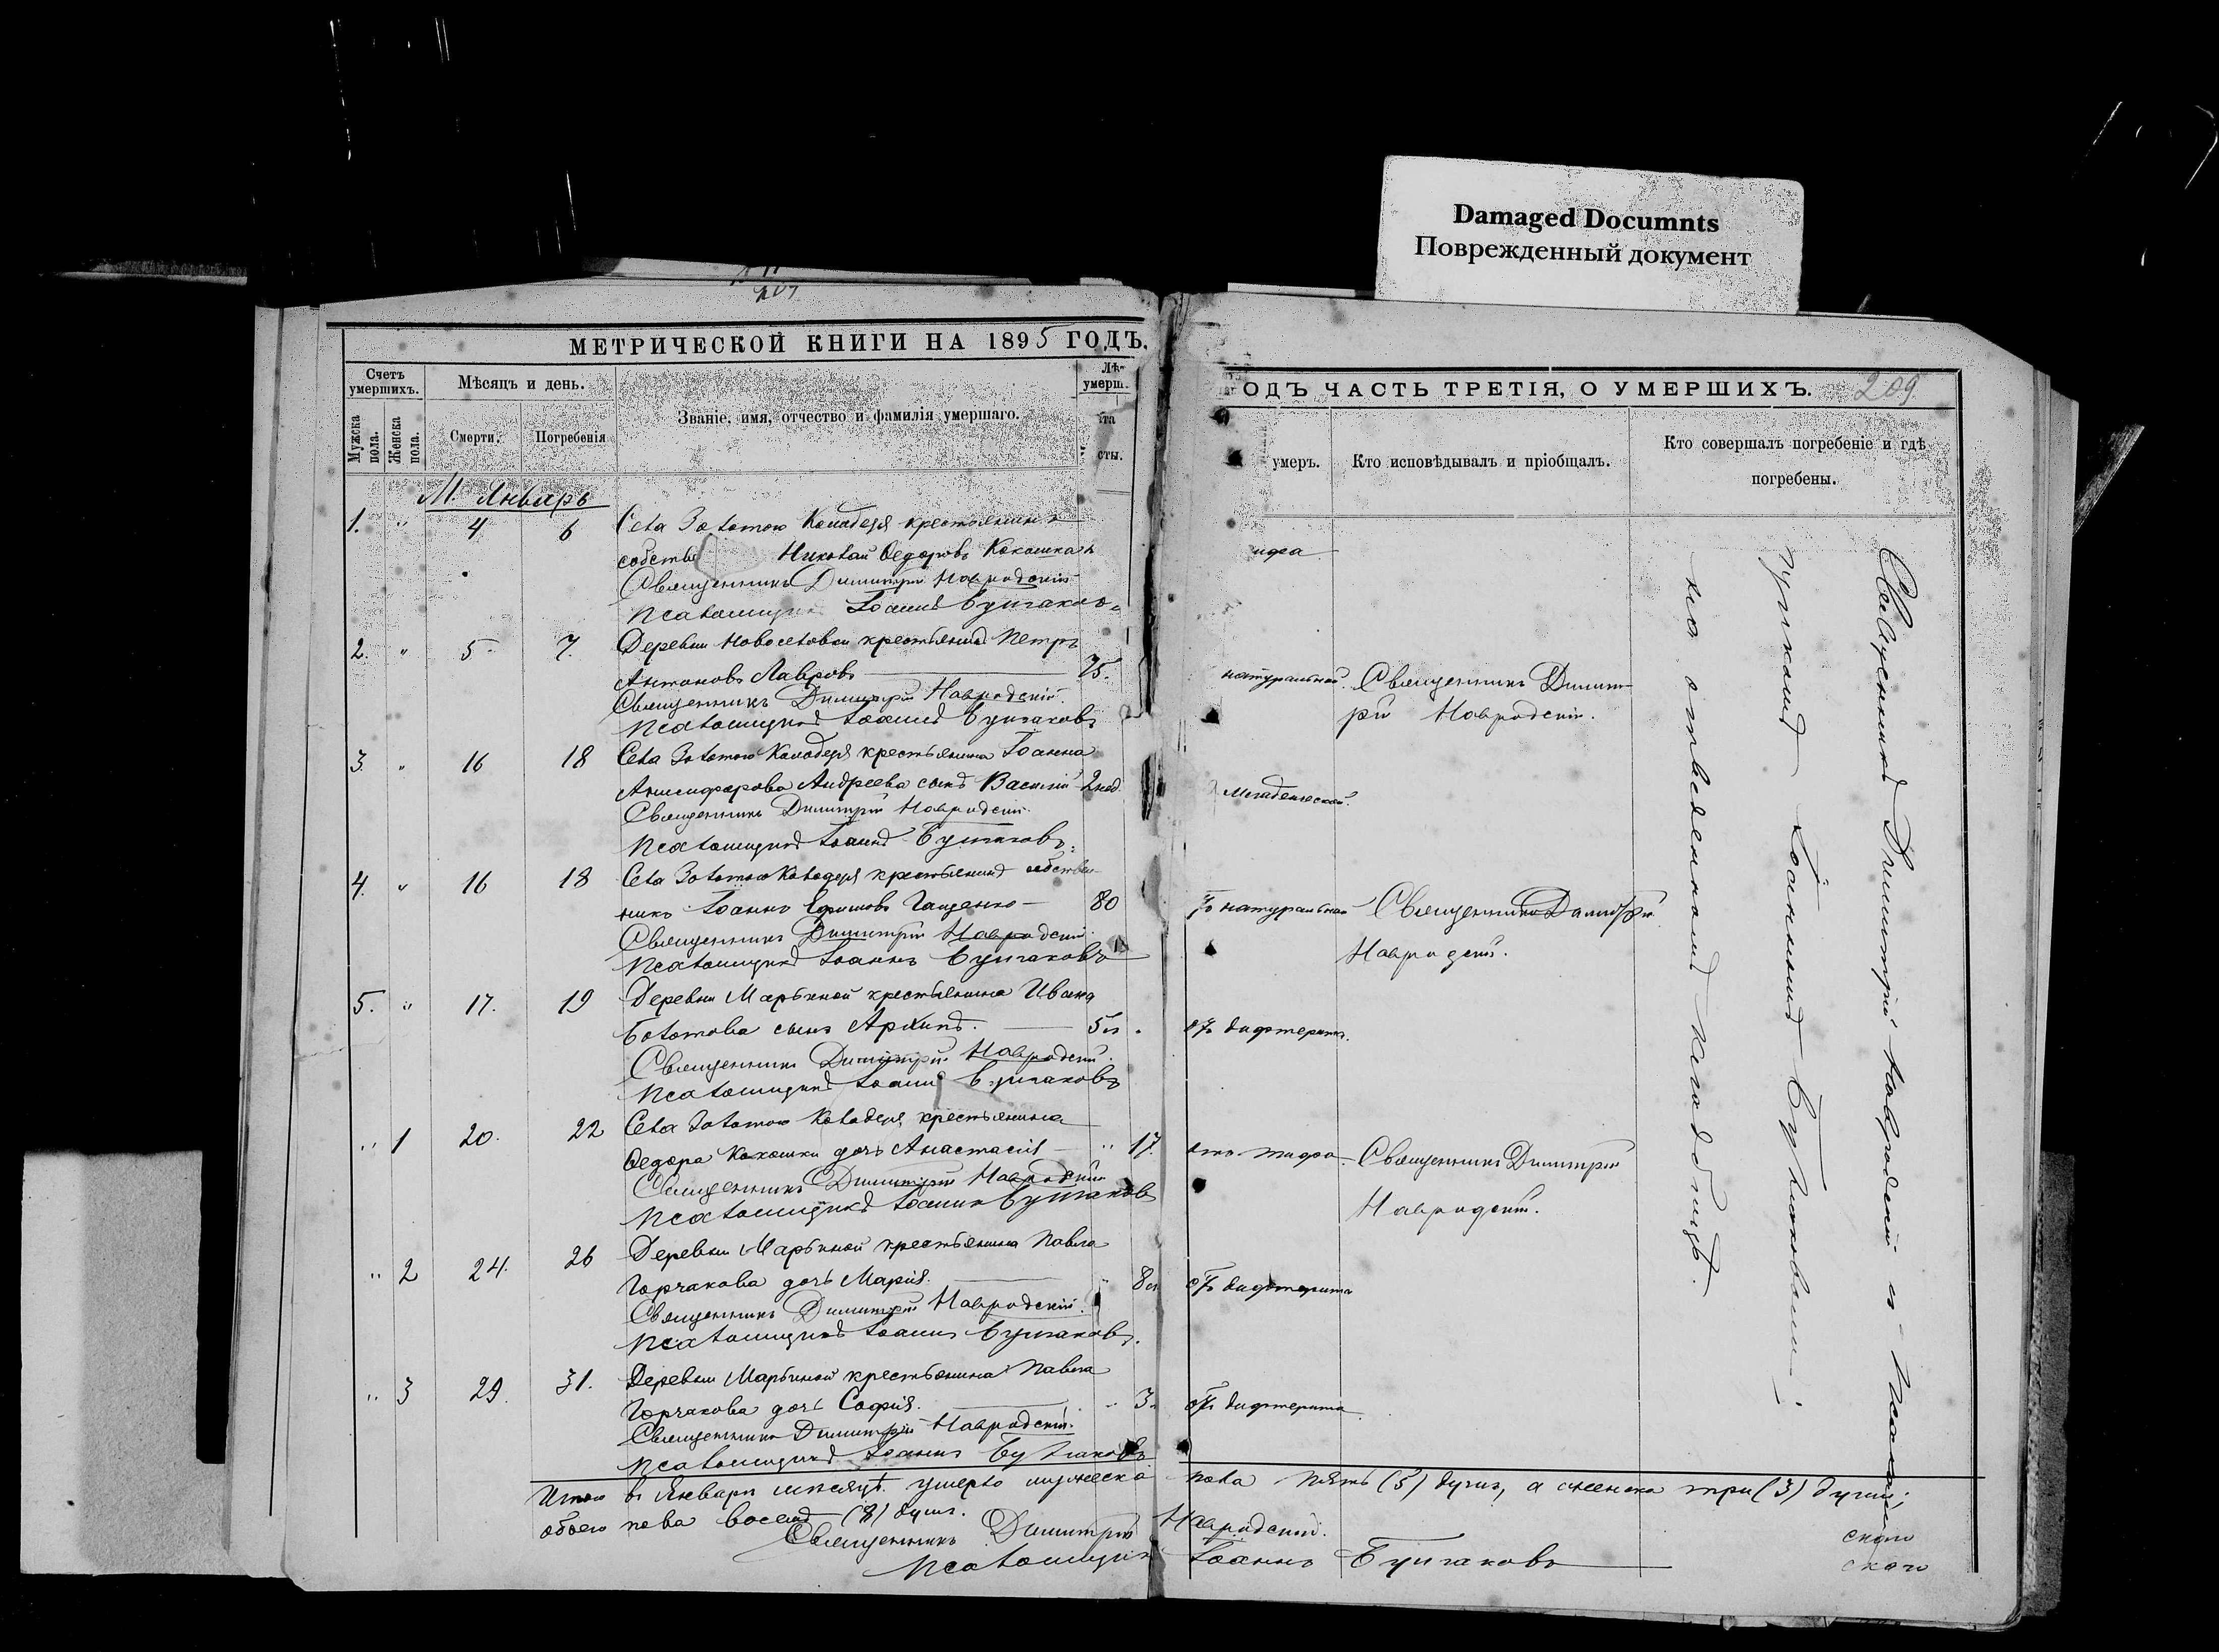 Damaged Documnts
Поврежденный документ
МЕТРИЧЕСКОЙ КНИГИ НА 1895 ГОДЪ,
Счетъ умершихъ.
Мужска пола.
Женска пола.
Мѣсяцъ и день.
Смерти.
Погребенія
Званіе, имя, отчество и фамилія умершаго.
Лѣ-
умерш.
та
сты.
М. Январь
1. " 4 6 Села Золотого Колодезя крестьянинъ
собстве Николай Ѳедоровъ Кокошка
Священникъ Димитрій Навродскій
Псаломщикъ Іоаннъ Булгаковъ
2. " 5 7. Деревни Новоселовки крестьянинъ Петръ
Антоновъ Лавровъ 75.
Священникъ Димитрій Навродскій.
Псаломщикъ Іоаннъ Булгаковъ
3. " 16 18 Села Золотого Колодезя крестьянина Іоанна
Андреева сынъ Василій 2 нед.
Священникъ Димитрій Навродскій.
Псаломщикъ Іоаннъ Булгаковъ.
4. " 16 18 Села Золотого Колодезя крестьянинъ собствен
никъ Іоаннъ Ефимовъ 80
Священникъ Димитрій Навродскій.
Псаломщикъ Іоаннъ Булгаковъ
5. " 17. 19 Деревни Марьиной крестьянина Ивана
Болотова сынъ Архипъ. 5
Священникъ Димитрій Навродскій.
Псаломщикъ Іоаннъ Булгаковъ
" 1 20. 22 Села Золотого Колодезя крестьянина
Ѳедора Кокошки дочь Анастасія " 17.
Священникъ Димитрій Навродскій
Псаломщикъ Іоаннъ Булгаковъ
" 2 24. 26 Деревни Марьиной крестьянина Павла
Горчакова дочь Марія. " 8
Священникъ Димитрій Навродскій.
Псаломщикъ Іоаннъ Булгаковъ.
" 3 29. 31. Деревни Марьиной крестьянина Павла
Горчакова дочь Софія. " 3
Священникъ Димитрій Навродскій.
Псаломщикъ Іоаннъ Булгаковъ
ОДЪ ЧАСТЬ ТРЕТІЯ, О УМЕРШИХЪ. 209
умеръ.
Кто исповѣдывалъ и пріобщалъ.
Кто совершалъ погребеніе и гдѣ
погребены.
натуральной. Священникъ Димит
рій Навродскій.
Младенческой.
натуральной Священникъ Димитрій
Навродскій.
отъ дифтерита.
отъ тифа. Священникъ Димитрій
Навродскій.
отъ дифтерита
отъ дифтерита
Священникъ Димитрій Навродскій съ Псалом
щикомъ Іоанномъ Булгаковымъ;
на отведенномъ кладбищѣ.
Итого въ Январѣ мѣсяцѣ умерло мужеска пола пять (5) душъ, а женска три (3) души;
обоего пола восемь (8) душъ.
Священникъ Димитрій Навродскій.
Псаломщикъ Іоаннъ Булгаковъ